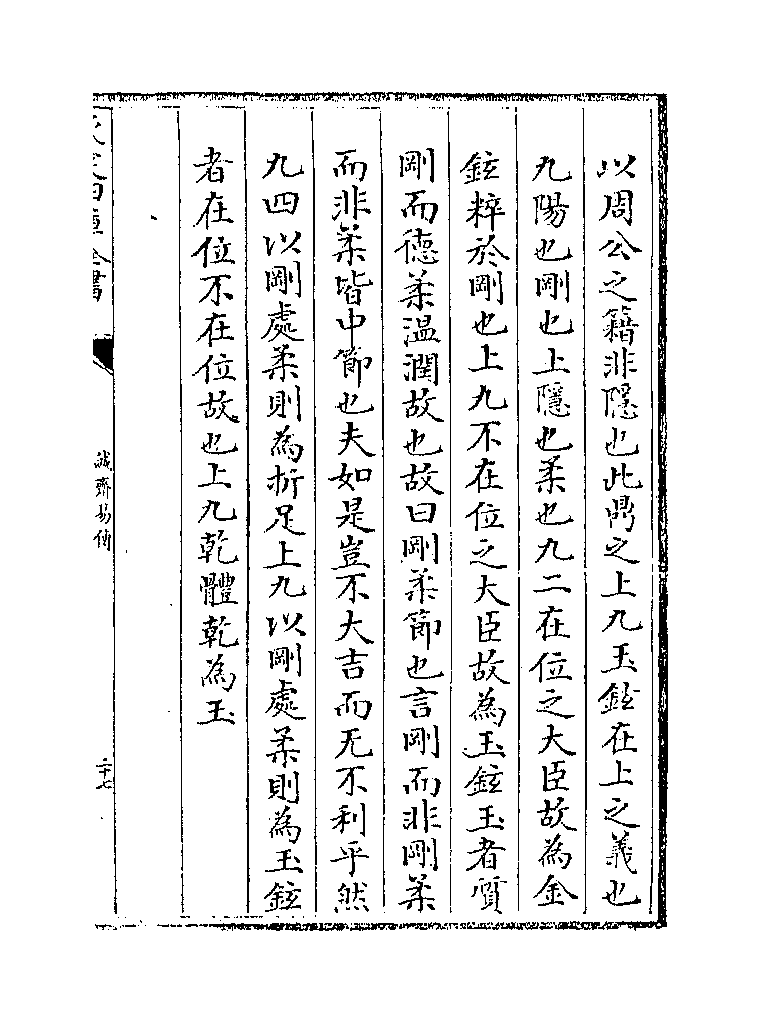 以周公之籍非隱也此鼎之上九玉鉉在上之義也
九陽也剛也上隱也柔也九二在位之大臣故為金
鉉粹於剛也上九不在位之大臣故為玉鉉玉者質
剛而德柔温潤故也故曰剛柔節也言剛而非剛柔
而非柔皆中節也夫如是豈不大吉而无不利乎然
九四以剛處柔則為折足上九以剛處柔則為玉鉉
者在位不在位故也上九乾體乾為玉
誠齋易傳
二十七